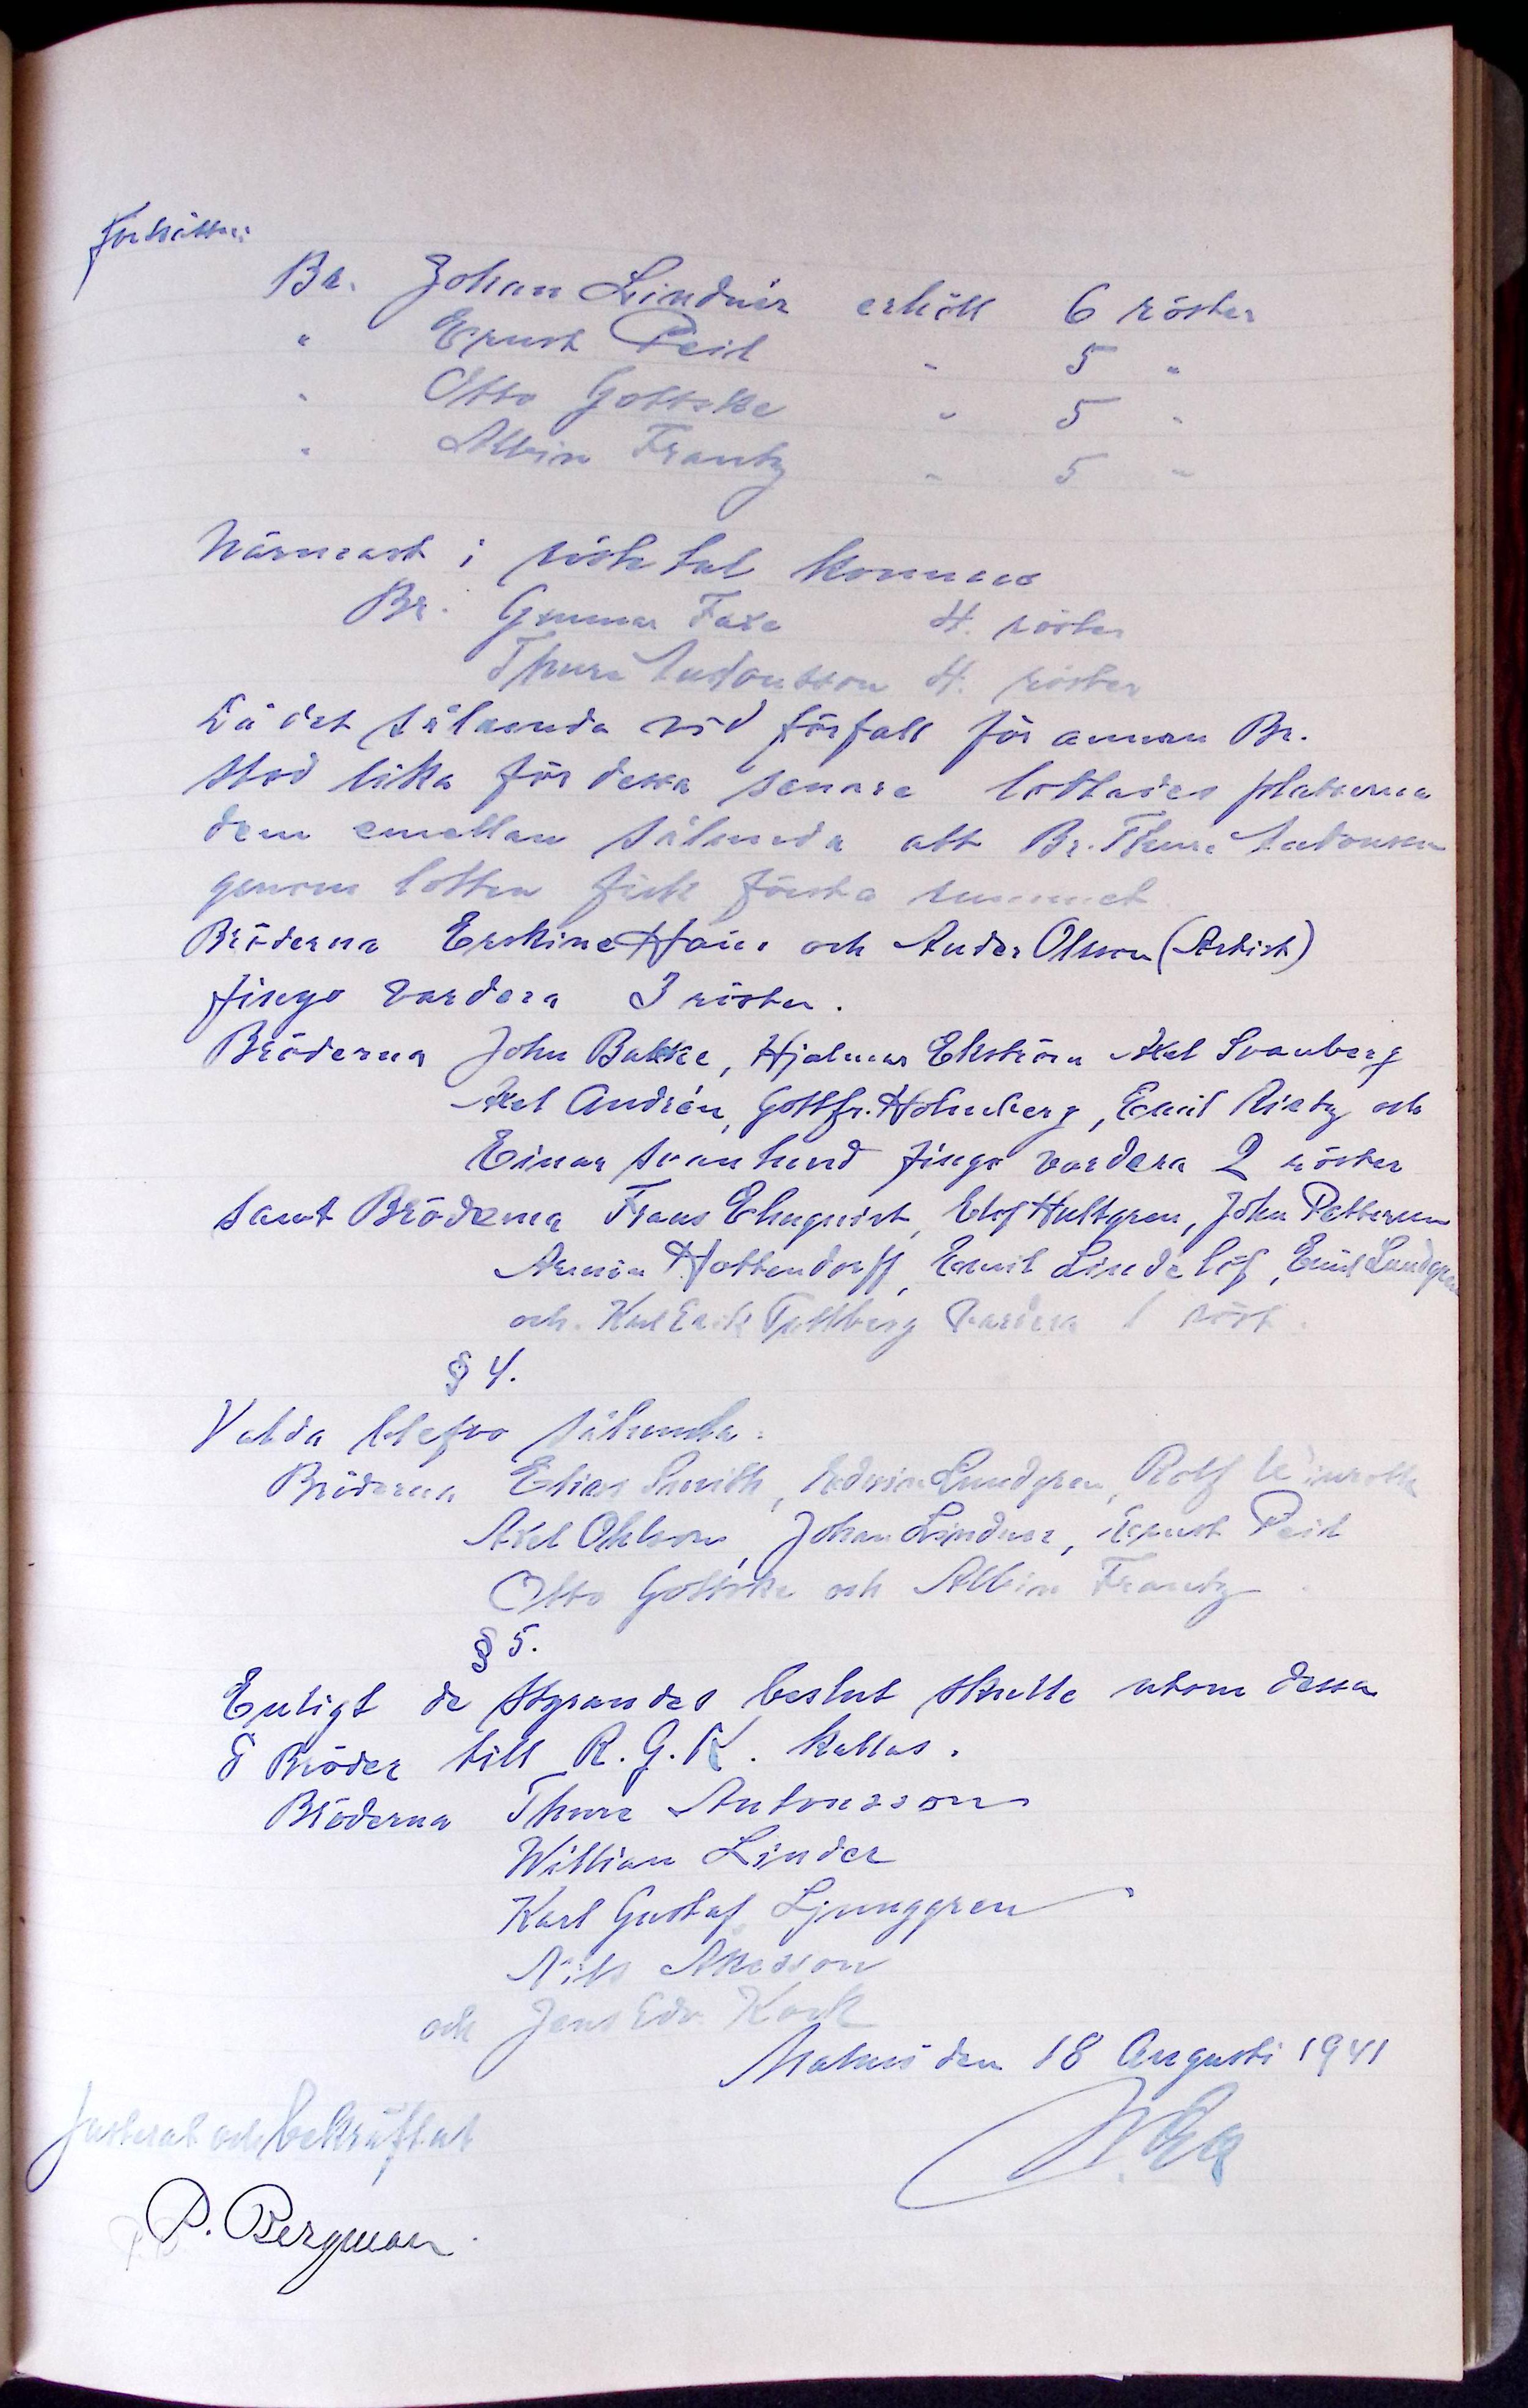 Forts.:
Br. Johan Lindnér erhöll 6 röster
" Ernst Peil " 5 "
" Otto Gottske " 5 "
" Albin Frantz " 5 "
Närmast i röstetal kommo
Br. Gunnar Faxe 4. röster
Thure Antonsson 4. röster
Då det sålunda vid förfall för annan Br.
stod lika för dessa senare lottades platserna
dem emellan sålunda att Br. Thure Antonsson
genom lotten fick första rummet
Bröderna Erskine och Ander Olsson (Artist)
fingo vardera 3 röster.
Bröderna John Bakke, Hjalmar Ekström Axel Svanberg
Axel Andrén, Gottfr. Holmberg, Emil Rietz och
Einar Svanlund fingo vardera 2 röster
samt Bröderna Frans Elmquist, Elof Hultgren, John Pettersson
Armin Hottendorff, Emil Lindelöf, Emil Lundgren
och Karl Erik vardera 1 röst.
§ 4.
Valda blefvo sålunda:
Bröderna Elias Smith, Edwin Lundgren, Rolf
Axel Ohlson, Johan Lindner, Ernst Peil
Otto Gottske och Albin Frantz
§ 5.
Enligt de styrandes beslut skulle utom dessa
8 Bröder till R. G. K. kallas.
Bröderna Thure Antonsson
William Linder
Karl Gustaf Ljunggren
Nils Åkesson
och Jens Edv. Kock
Malmö den 18 Augusti 1941
Justerat och bekräftat
P. Bergman